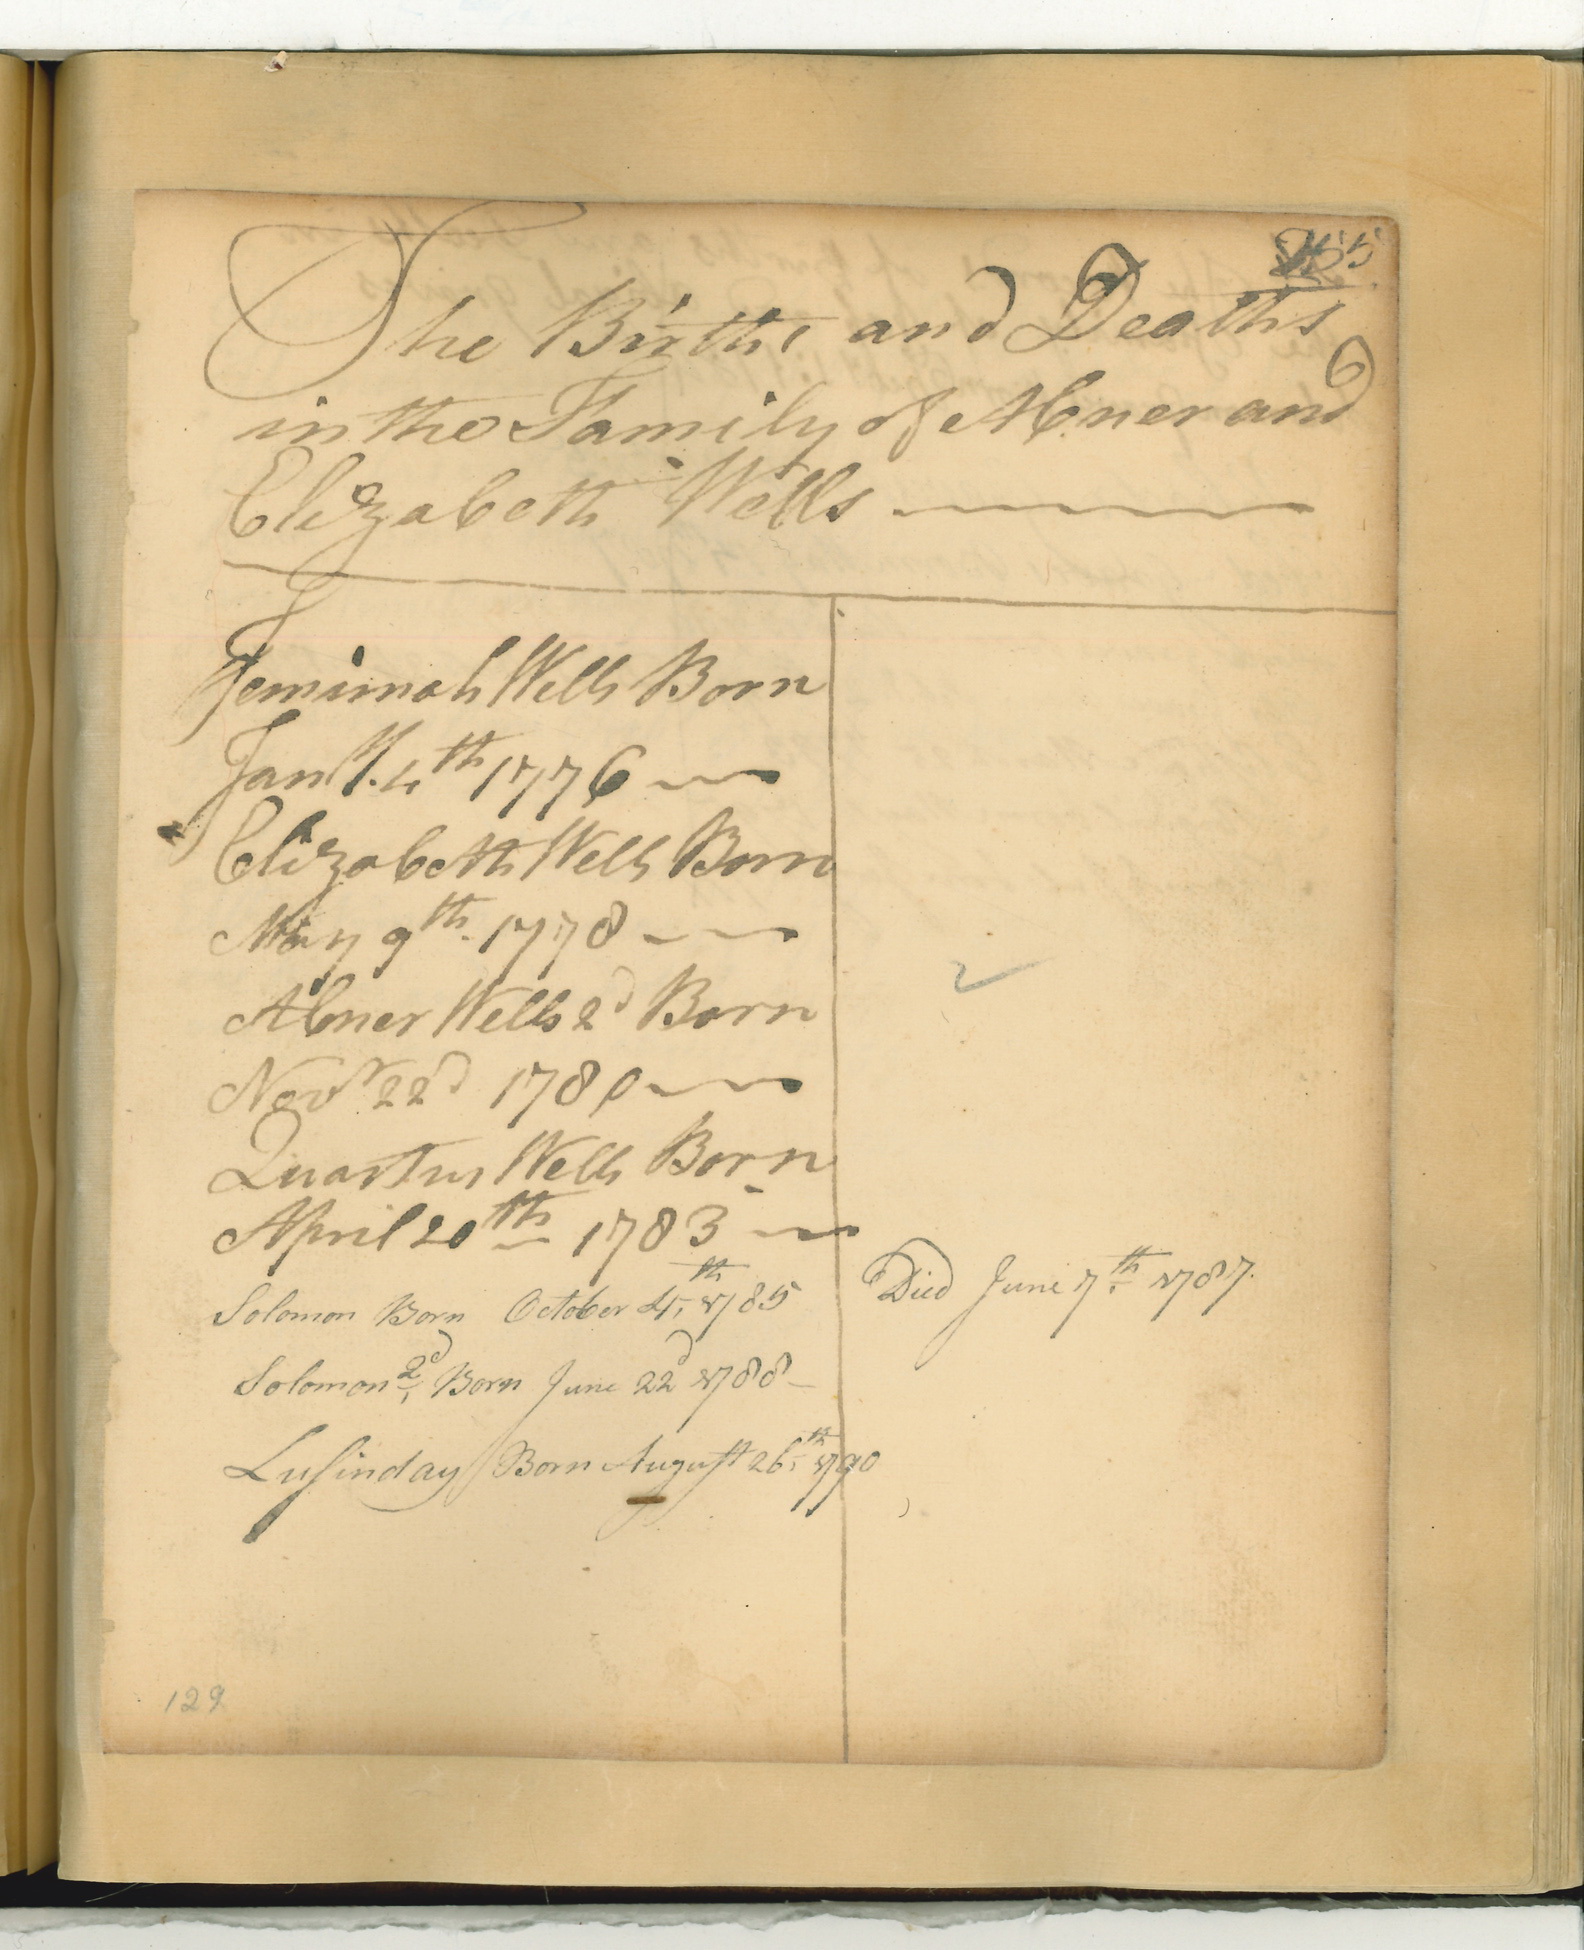 155
The Births and Deaths
in the Family of Abner and
Elizabeth Wells
Jemimah Wells Born
Jany. 4th 1776
Elizabeth Wells Born
May 9th. 1778
Abner Wells 2d Born
Novr 22d 1780
Quartus Wells Born
April 20th 1783
Solomon Born October 4th, 1785 Died June 7th. 1787.
Solomon 2d, Born June 22d 1788
Lusinday Born August 26th, 1790
129